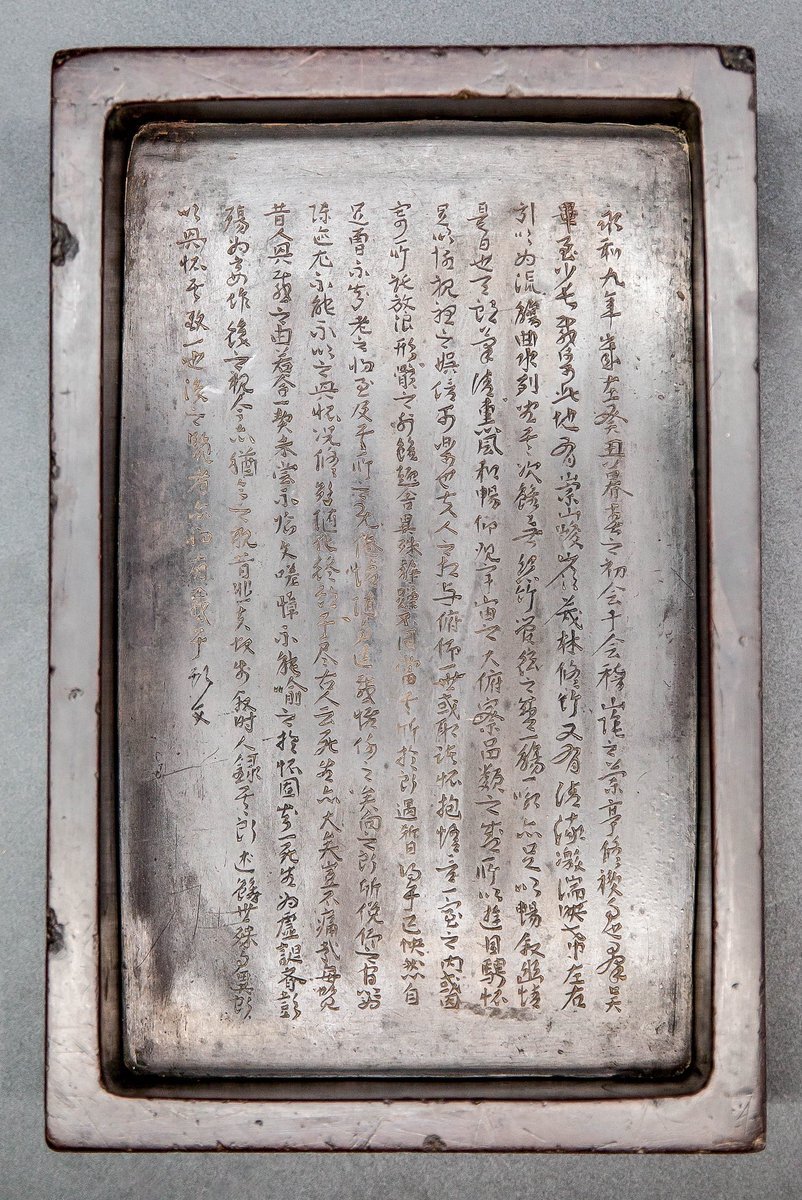 永和九年歲在癸丑暮春之初会于会稽山陰之蘭亭修禊事也羣賢
畢至少長咸集此地有崇山峻嶺茂林修竹又有清流激湍映帶左右
引以為流觴曲水列坐其次雖無絲竹管絃之盛一觴一詠亦足以暢叙幽情
是日也天朗氣清惠風和暢仰觀宇宙之大俯察品類之盛所以遊目騁懷
足以極視聽之娛信可樂也夫人之相与俯仰一世或取諸懷抱悟言一室之内或因
寄所託放浪形骸之外雖趣舍萬殊静躁不同當其欣於所遇暫得於己快然自
足曾不知老之將至及其所之既倦情隨事遷感慨係之矣向之所欣俛仰之間以為
陳迹尤不能不以之興懷况修短隨化終期于盡古人云死生亦大矣豈不痛哉每覽
昔人興感之由若合一契未嘗不臨文嗟悼不能喻之於懷固知一死生為虛誕齊彭
殤為妄作後之視今亦猶今之視昔悲夫故列叙時人錄其所述雖世殊事異所
以興懷其致一也後之覽者亦將有感乎斯文